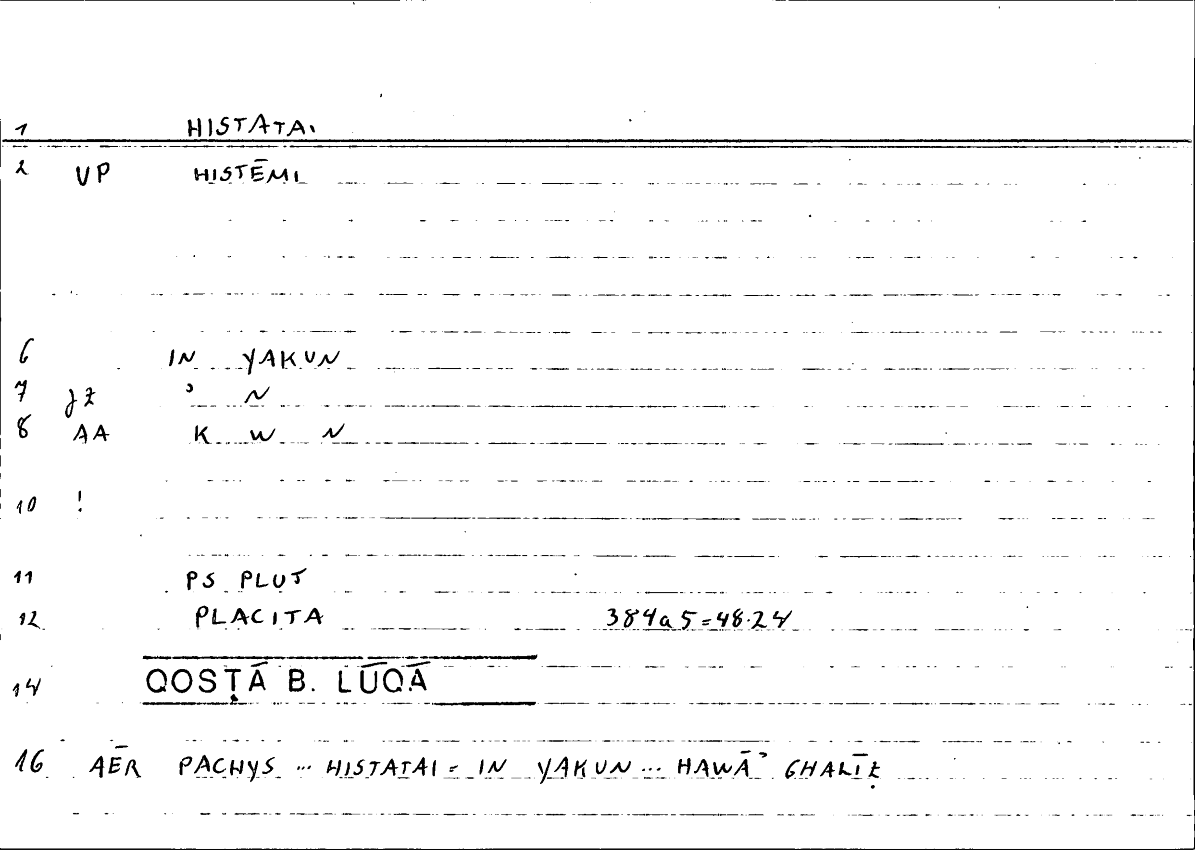 1 HISTATAI
2 VP HISTĒMI
6 IN YAKUN
7 JZ ʾ N
8 AA K W N
10 !
11 PS PLUT
12 PLACITA 384a5=48.24
14 QOSṬĀ B. LŪQĀ
16 AĒR PACHYS ... HISTATAI = IN YAKUN ... HAWĀʾ GHALĪẒ